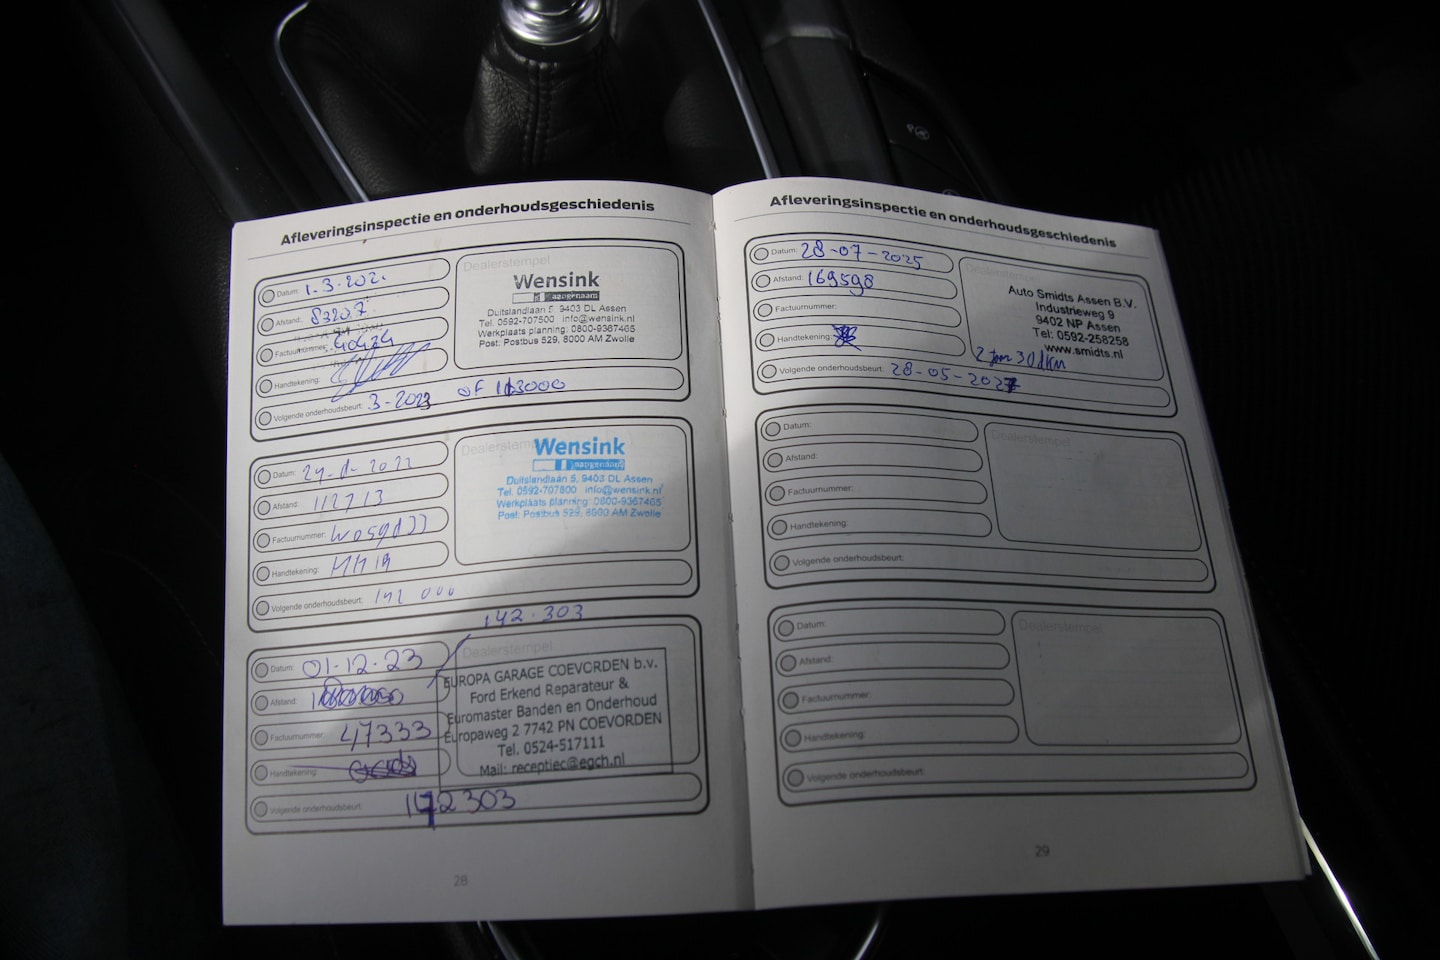 Afleveringsinspectie en onderhoudsgeschiedenis
Dealerstempel
Datum: 1-3-2021
Afstand: 83207
Factuurnummer: 40424
Handtekening:
Volgende onderhoudsbeurt: 3-2023 OF 113000
Wensink
aangenaam
Duitslandlaan 5, 9403 DL Assen
Tel. 0592-707500 info@wensink.nl
Werkplaats planning: 0800-9367465
Post: Postbus 529, 8000 AM Zwolle
Dealerstempel
Datum: 2022
Afstand: 112713
Factuurnummer:
Handtekening:
Volgende onderhoudsbeurt: 142 000
Wensink
aangenaam
Duitslandlaan 5, 9403 DL Assen
Tel. 0592-707500 info@wensink.nl
Werkplaats planning: 0800-9367465
Post: Postbus 529, 8000 AM Zwolle
142.303
Dealerstempel
Datum: 01-12-23
Afstand:
Factuurnummer: 47333
Handtekening:
Volgende onderhoudsbeurt: 172303
EUROPA GARAGE COEVORDEN b.v.
Ford Erkend Reparateur &
Euromaster Banden en Onderhoud
Europaweg 2 7742 PN COEVORDEN
Tel. 0524-517111
Mail: receptiec@egch.nl
28
Afleveringsinspectie en onderhoudsgeschiedenis
Dealerstempel
Datum: 28-07-2025
Afstand: 169598
Factuurnummer:
Handtekening:
Volgende onderhoudsbeurt: 28-05-2027
Auto Smidts Assen B.V.
Industrieweg 9
9402 NP Assen
Tel: 0592-258258
www.smidts.nl
Dealerstempel
Datum:
Afstand:
Factuurnummer:
Handtekening:
Volgende onderhoudsbeurt:
Dealerstempel
Datum:
Afstand:
Factuurnummer:
Handtekening:
Volgende onderhoudsbeurt:
29